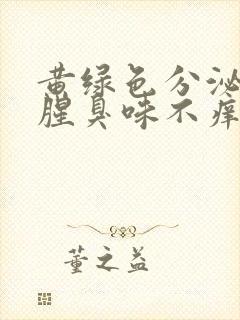 黄绿色分泌
腥臭味不痒
董之益